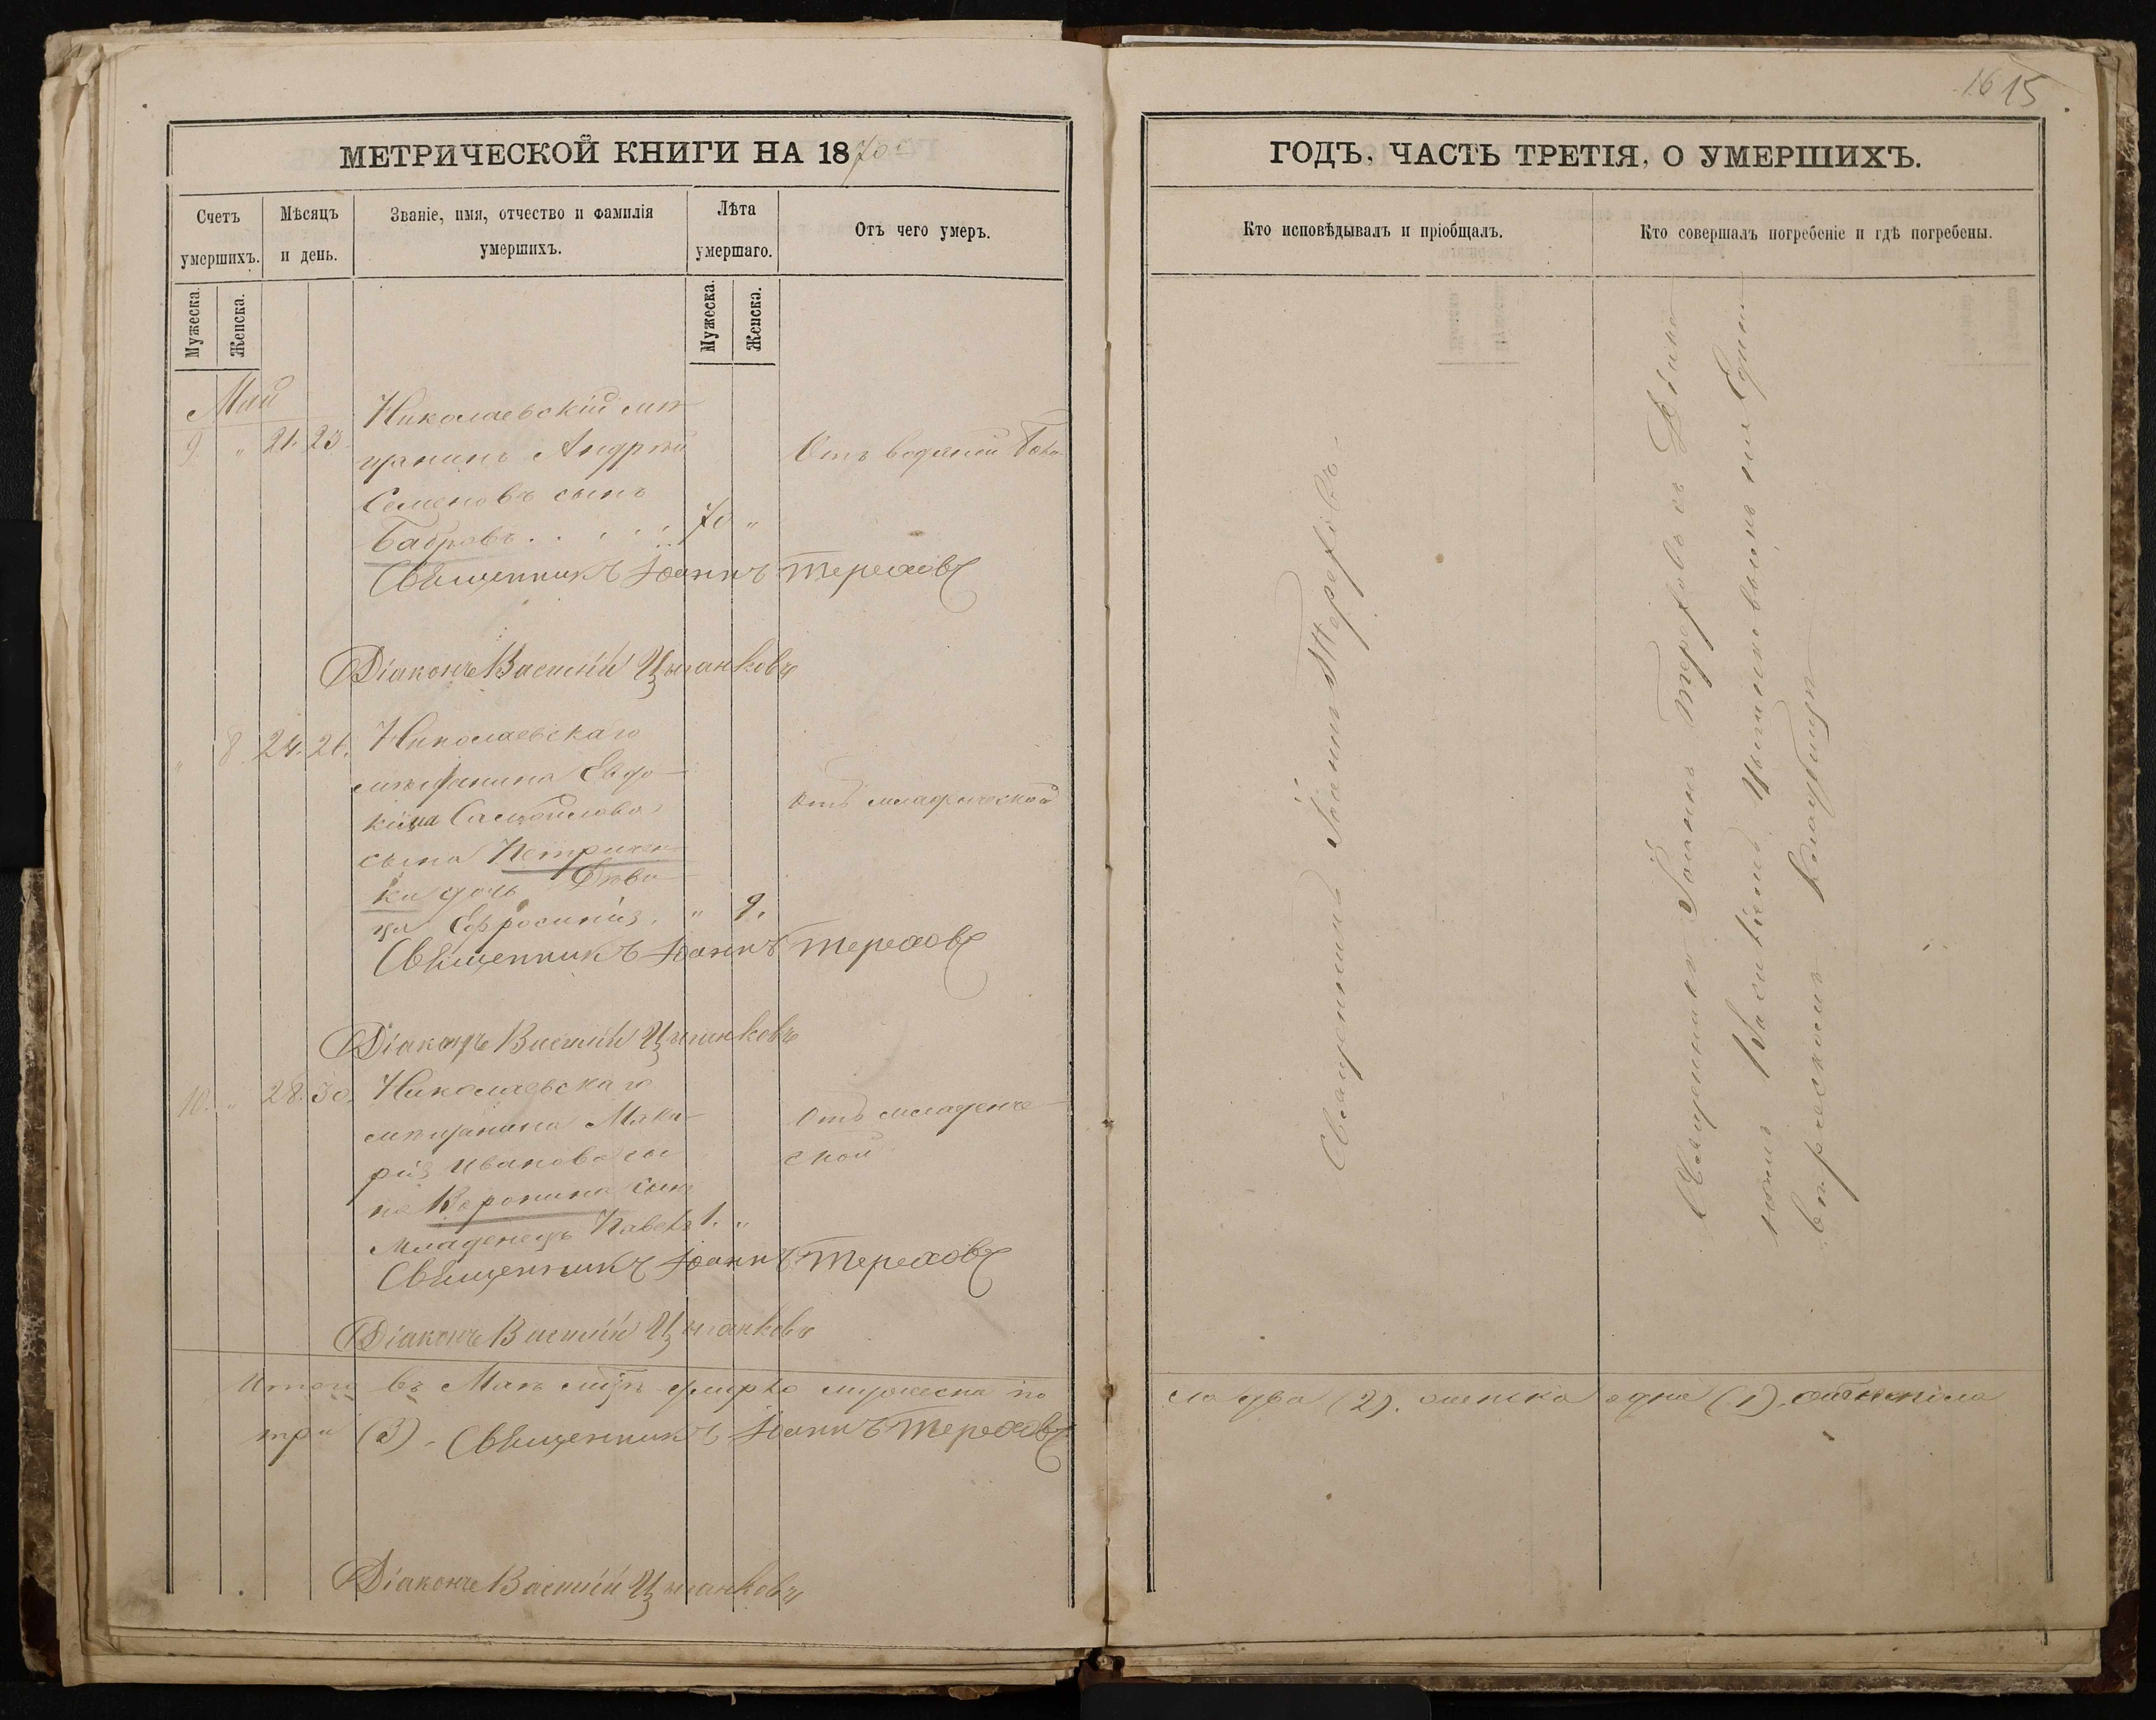 МЕТРИЧЕСКОЙ КНИГИ НА 1870
Счетъ умершихъ.
Мѣсяцъ и день.
Званіе, имя, отчество и фамилія умершихъ.
Лѣта умершаго.
Отъ чего умеръ.
Мужеска.
Женска.
Мужеска.
Женска.
Май
9. " 21. 23.
Николаевскій мѣ-
щанинъ Андрей
Семеновъ сынъ
Бобровъ
70 "
Отъ водяной
Священникъ Іоаннъ Тереховъ
Діаконъ Василій Цыганковъ
" 8. 24. 26.
Николаевскаго
мѣщанина Евдо-
кима Самойлова
сына Петричен-
ки дочь Дѣви-
ца Ефросинія.
" 9.
Отъ младенческой
Священникъ Іоаннъ Тереховъ
Діаконъ Василій Цыганковъ
10. " 28. 30.
Николаевскаго
мѣщанина Мака-
рія Иванова сы-
на Воронина сынъ
Младенецъ Павелъ
1. "
Отъ младенче-
ской
Священникъ Іоаннъ Тереховъ
Діаконъ Василій Цыганковъ
Итого въ Маѣ умерло мужеска по-
три (3). Священникъ Іоаннъ Тереховъ
Діаконъ Василій Цыганковъ
16 15
ГОДЪ, ЧАСТЬ ТРЕТІЯ, О УМЕРШИХЪ.
Кто исповѣдывалъ и пріобщалъ.
Кто совершалъ погребеніе и гдѣ погребены.
Священникъ Іоаннъ Тереховъ
Священникъ Іоаннъ Тереховъ съ Діако-
номъ Василіемъ Цыганковымъ на
кладбищѣ
ла два (2). женска одна (1). обоего пола